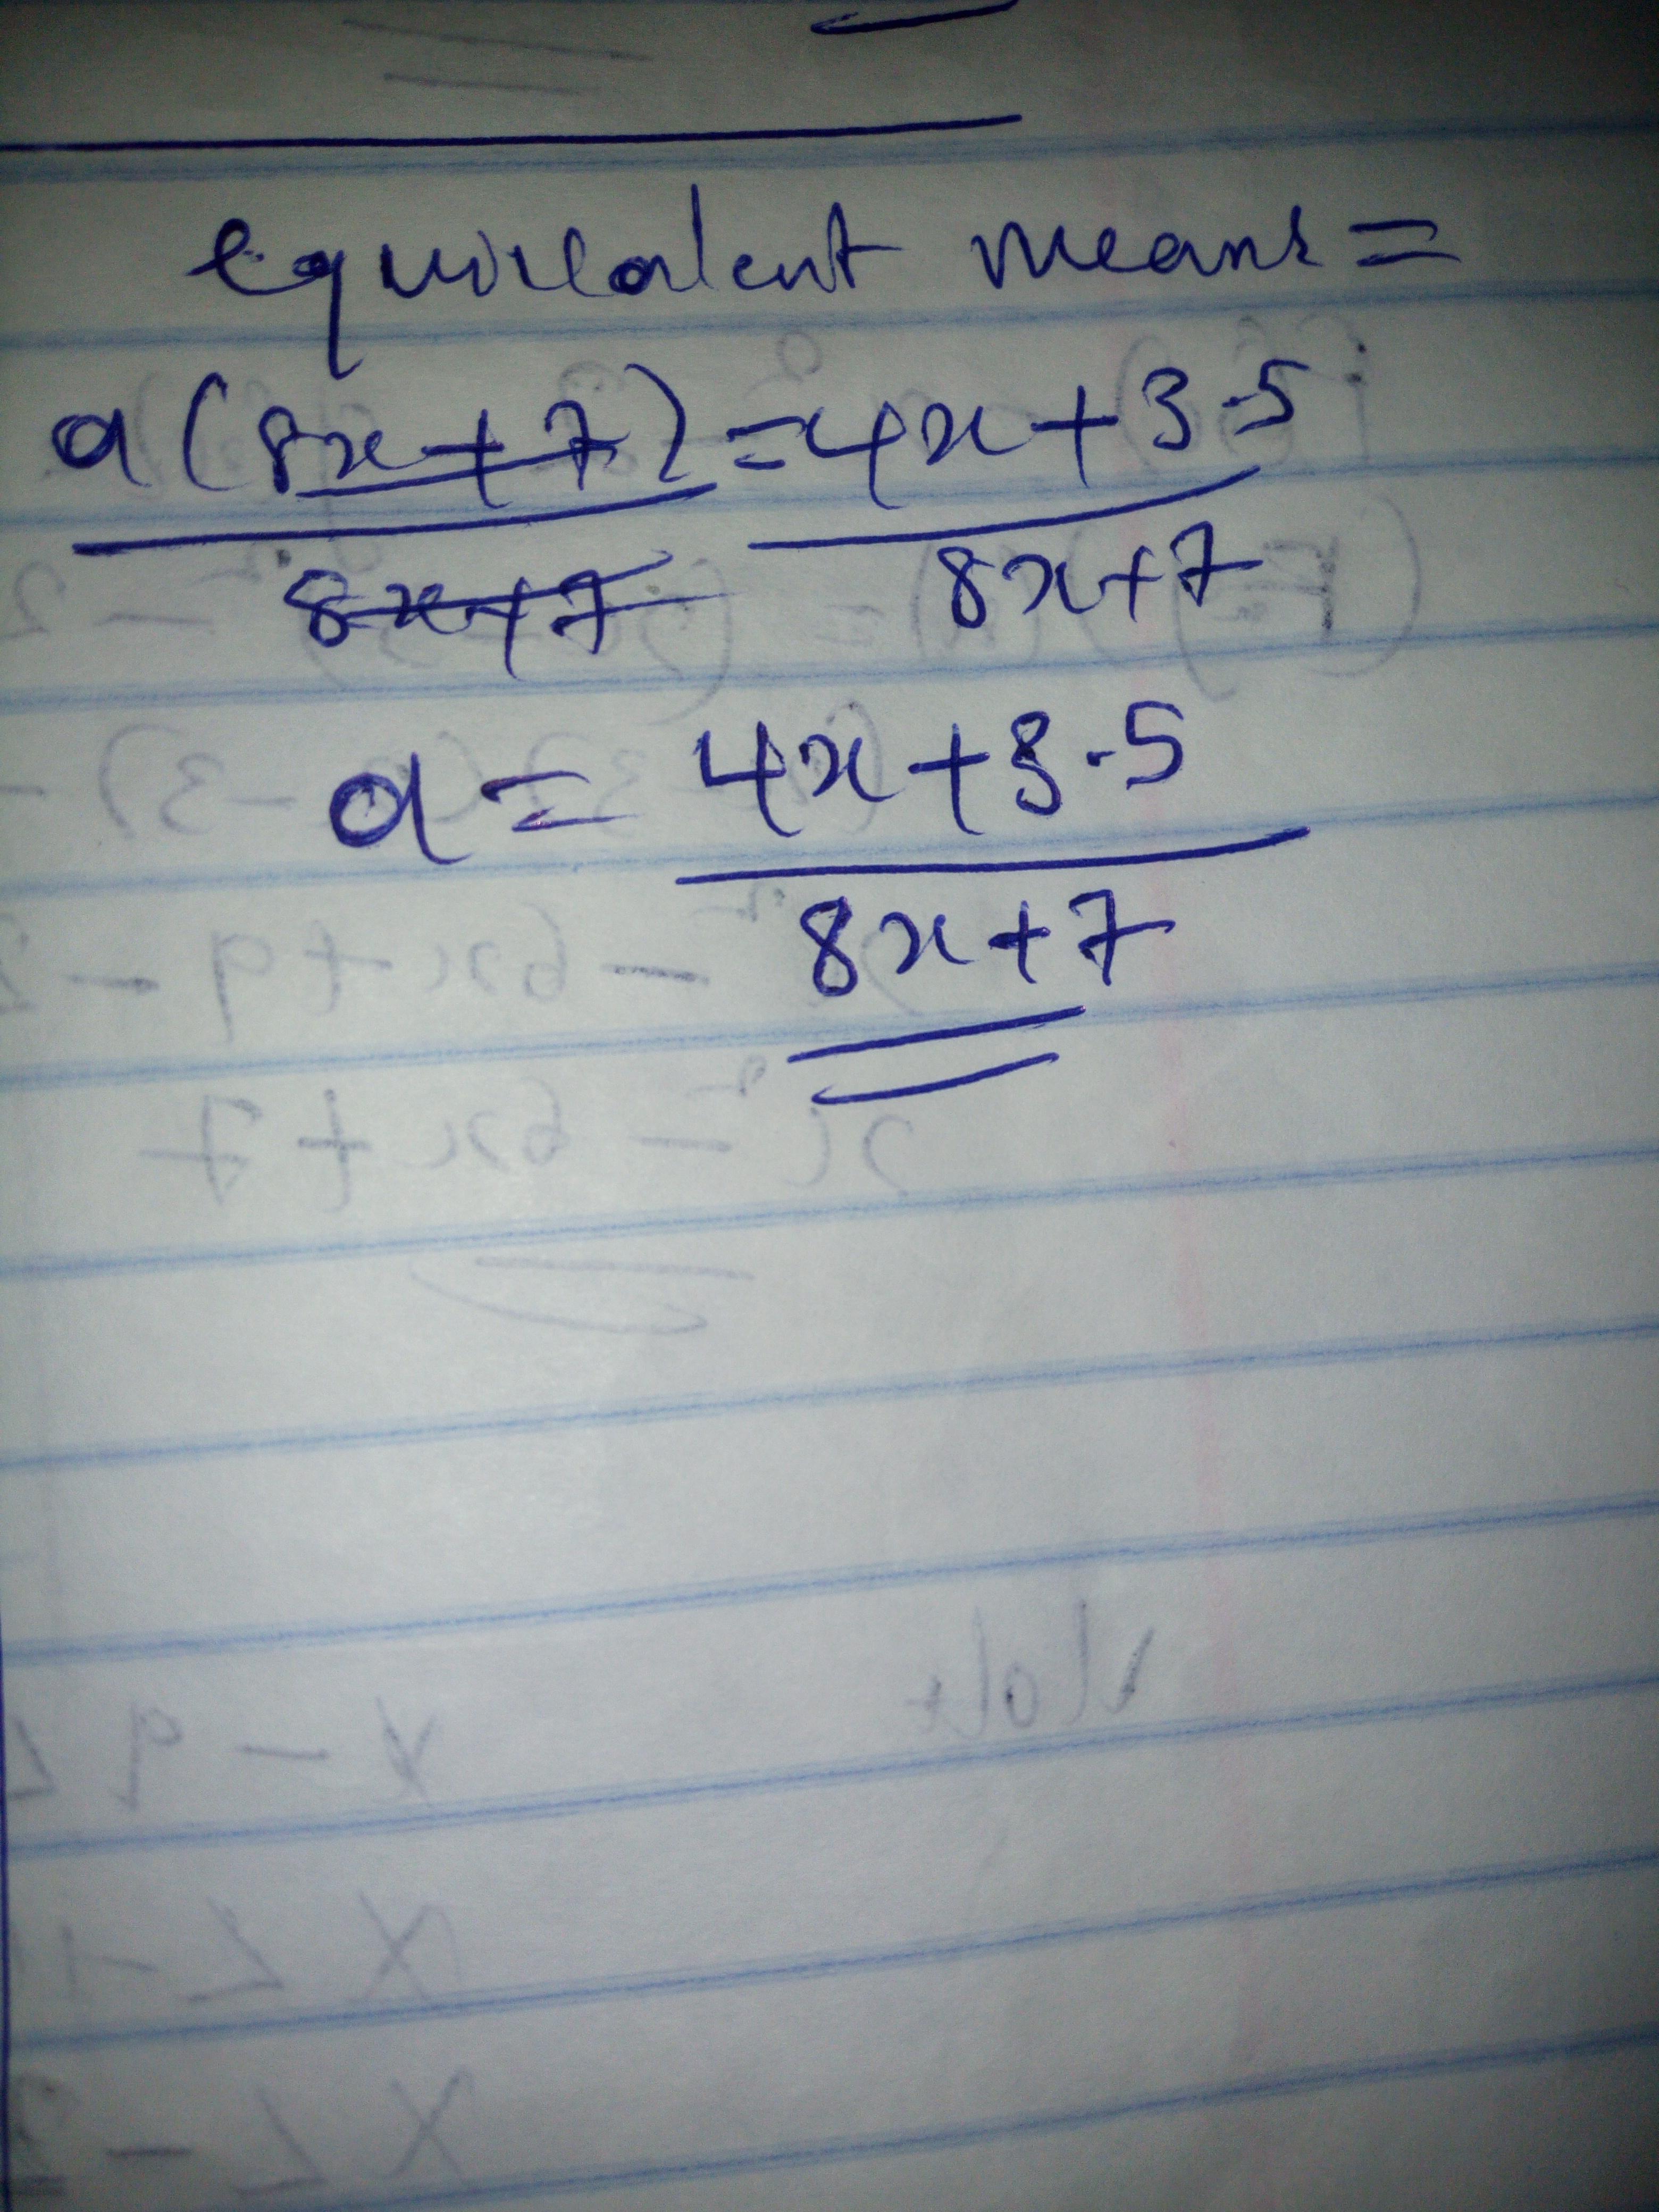 equivalent means =
a(8x+7) = 4x+3.5
8x+7 8x+7
a = 4x+3.5
8x+7